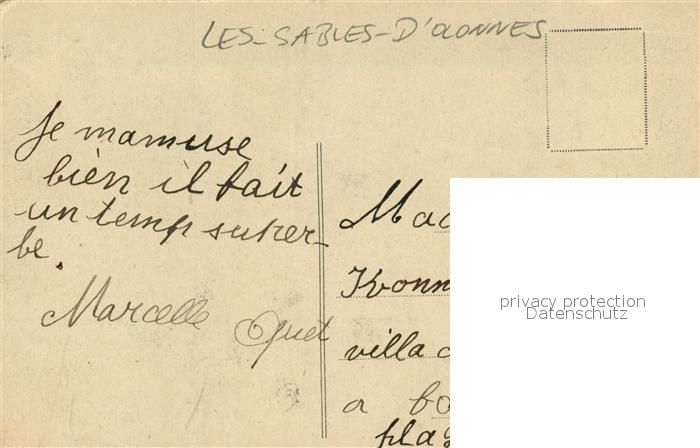 LES-SABLES-D'OLONNES
Je mamuse
bien il fait
un temp super-
be.
Marcelle
Mad
Yvonn
villa
a bo
plag
privacy protection
Datenschutz